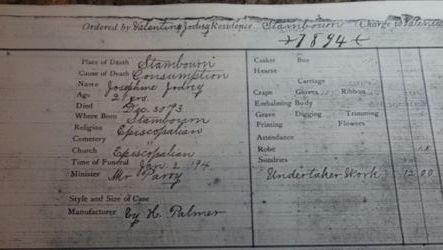 Ordered by Valentine Jodrey Residence Stambourn Charge to Valentine
1894
Place of Death Stambourn
Cause of Death Consumption
Name Josephine Jodrey
Age 29 yrs.
Died Dec. 30 93
Where Born Stambourn
Religion Episcopalian
Cemetery
Church Episcopalian
Time of Funeral Jan 2 '94
Minister Mr Parry
Style and Size of Case
Manufacturer by H. Palmer
Casket Box
Hearse
Carriage
Crape Gloves Ribbon
Embalming Body
Grave Digging Trimming
Printing Flowers
Attendance
Robe
Sundries
Undertaker Work 12 00